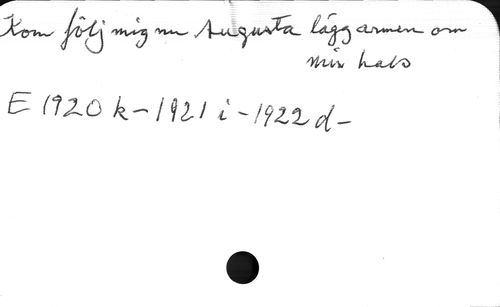 Kom följ mig nu Augusta lägg armen om
min hals
E 1920 k – 1921 i – 1922 d –